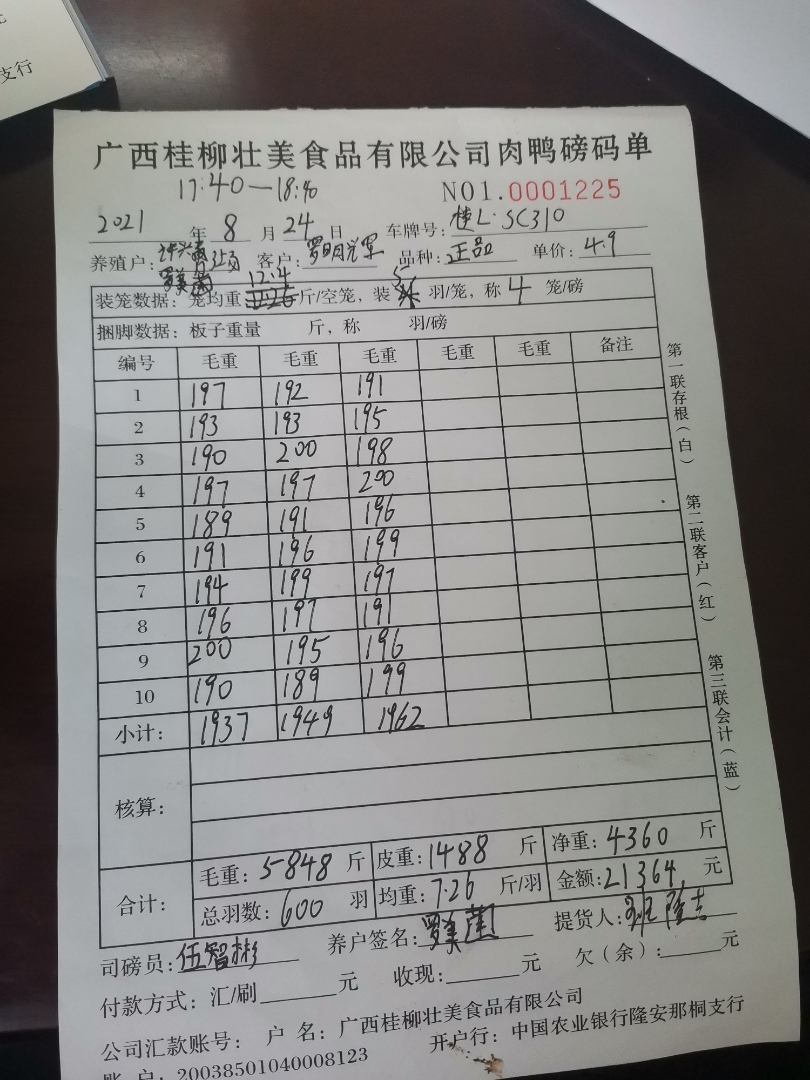 支行
广西桂柳壮美食品有限公司肉鸭磅码单
17:40—18:40
NO1.0001225
2021 年 8 月 24 日 车牌号: 桂L·SC310
养殖户: 客户: 罗明光军 品种: 正品 单价: 4.9
装笼数据: 笼均重 12.4 斤/空笼, 装 5 羽/笼, 称 4 笼/磅
捆脚数据: 板子重量 斤, 称 羽/磅
编号 毛重 毛重 毛重 毛重 毛重 备注
1 197 192 191
2 193 193 195
3 190 200 198
4 197 197 200
5 189 191 196
6 191 196 199
7 194 199 197
8 196 197 191
9 200 195 196
10 190 189 199
小计: 1937 1949 1962
核算:
合计: 毛重: 5848 斤 皮重: 1488 斤 净重: 4360 斤
总羽数: 600 羽 均重: 7.26 斤/羽 金额: 21364. 元
司磅员: 伍智彬 养户签名: 罗美 提货人: 隆吉
付款方式: 汇/刷 元 收现: 元 欠(余): 元
公司汇款账号: 户 名: 广西桂柳壮美食品有限公司
账 户: 20038501040008123 开户行: 中国农业银行隆安那桐支行
第一联存根(白) 第二联客户(红) 第三联会计(蓝)